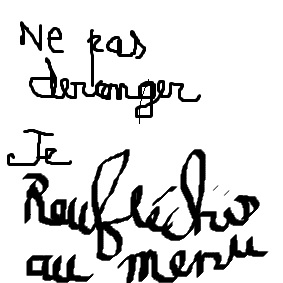 Ne pas
deranger
Je
Reufléchis
au menu